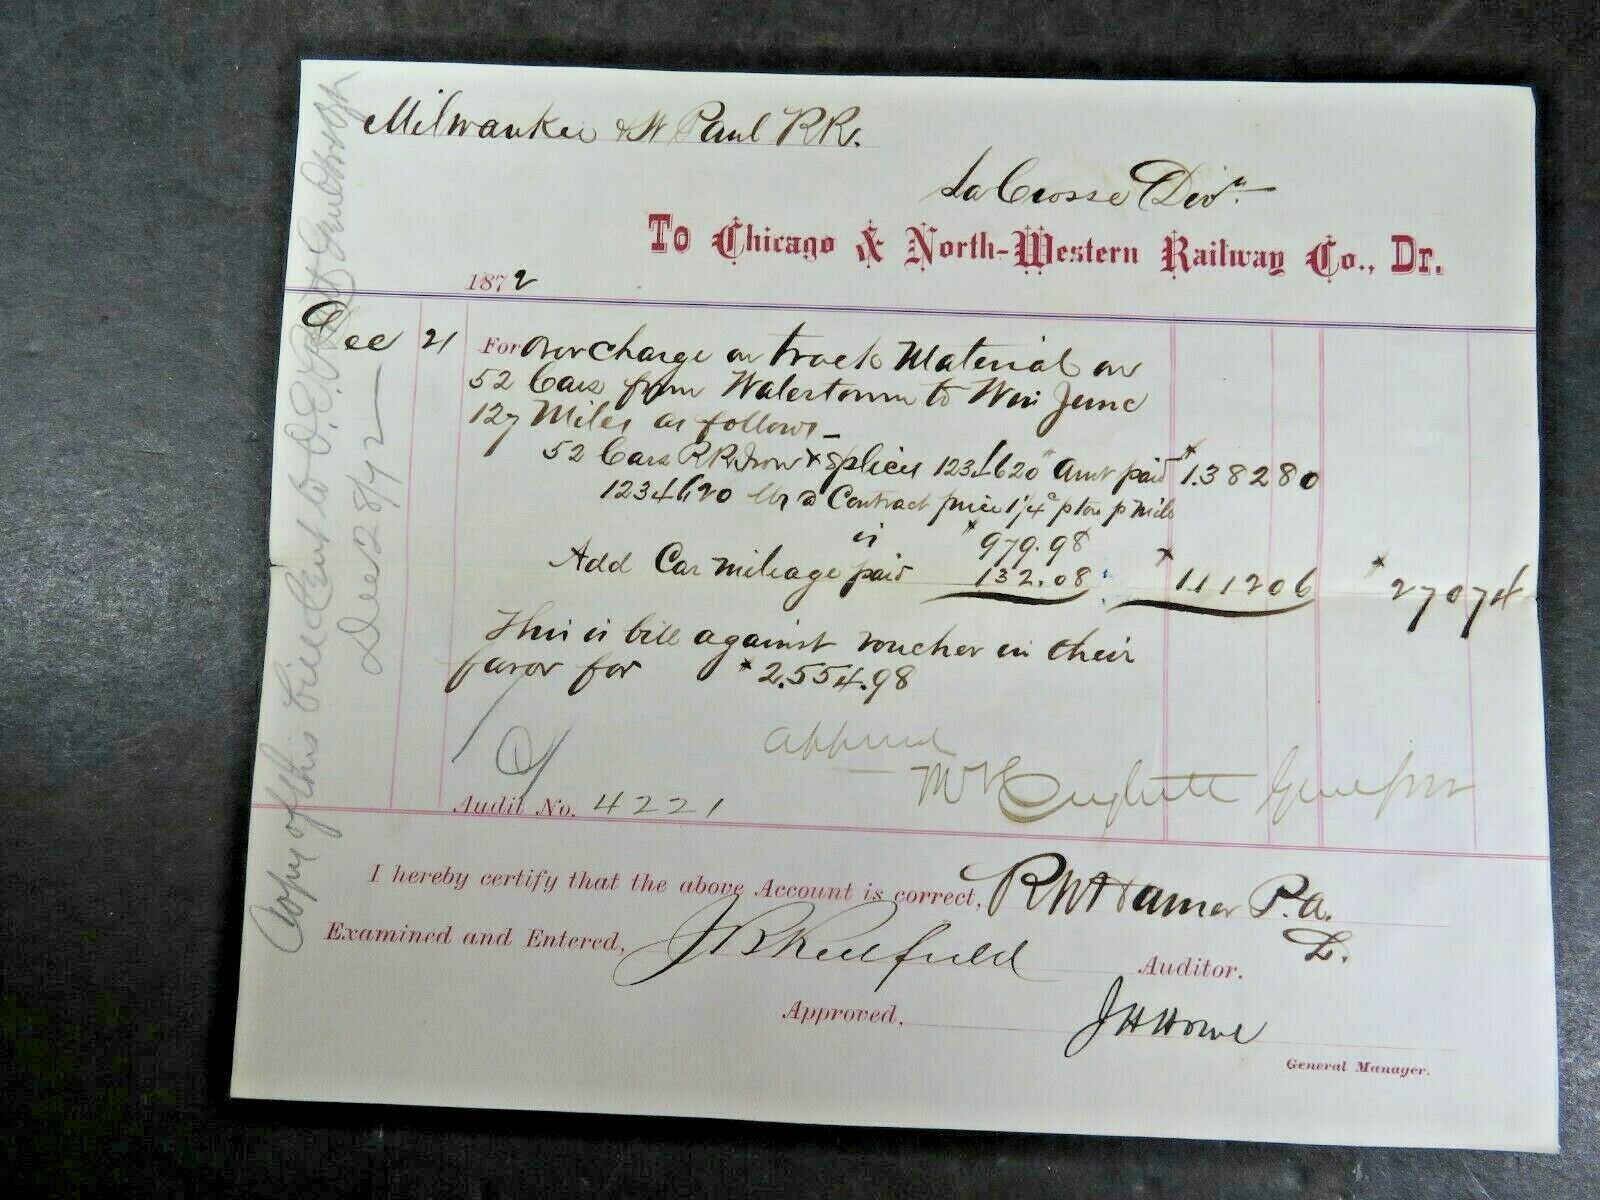 Milwaukee & St Paul RR.
La Crosse Divn
To Chicago & North-Western Railway Co., Dr.
1872
Dec 21 For over charge on track Material on
52 Cars from Watertown to Win June
127 Miles as follows
52 Cars RR Iron & Splices 1234620# Amt paid $1.38280
1234620 lbs @ Contract price 1¼c p ton p mile
is $979.98
Add Car mileage paid 132.08 $111206 $27074
This is bill against voucher in their
favor for $2.554.98
Approved
Audit No. 4221
I hereby certify that the above Account is correct, P.A.
Examined and Entered, J B Redfield Auditor.
Approved, J H Howe
General Manager.
Copy of this bill sent to
Dec 28/72